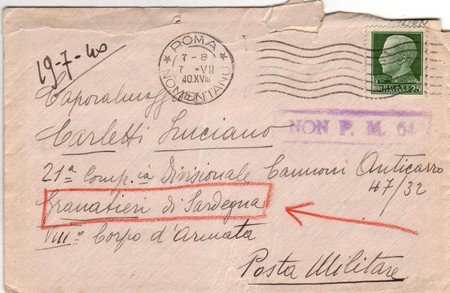 19-7-40
ROMA
7-8
7 VII
40.XVIII
NOMENTANO
25
NON P. M. 54
Caporalmagg
Carletti Luciano
21ª Comp.ia Divisionale Cannoni Anticarro
47/32
Granatieri di Sardegna
VIIIº Corpo d'Armata
Posta Militare